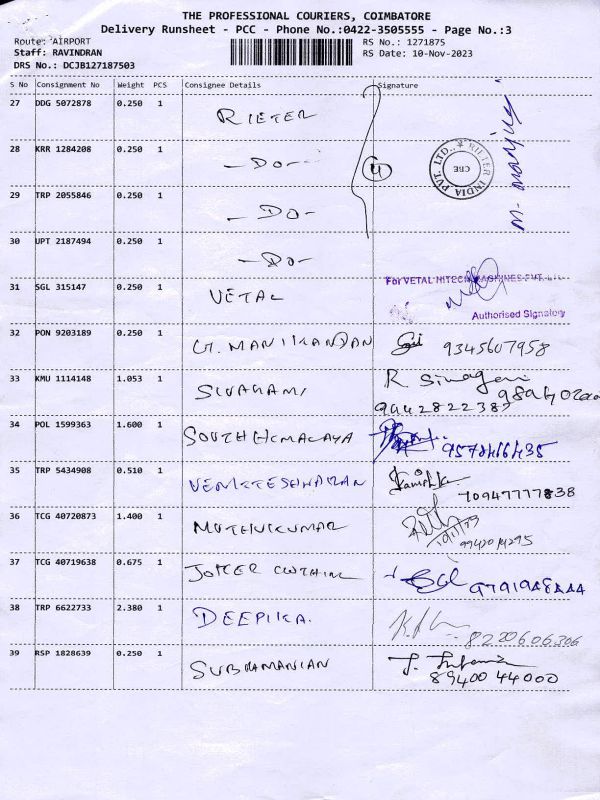 THE PROFESSIONAL COURIERS, COIMBATORE
Delivery Runsheet - PCC - Phone No.:0422-3505555 - Page No.:3
Route: AIRPORT RS No.: 1271875
Staff: RAVINDRAN RS Date: 10-Nov-2023
DRS No.: DCJB127187503
S No Consignment No Weight PCS Consignee Details Signature
27 DDG 5072878 0.250 1 RIETER
28 KRR 1284208 0.250 1 -DO- 4
RIETER INDIA PVT. LTD., CBE
M. Manju
29 TRP 2055846 0.250 1 -DO-
30 UPT 2187494 0.250 1 -DO-
31 SGL 315147 0.250 1 VETAL For VETAL HITECH MACHINES PVT. LTD.
Authorised Signatory
32 PON 9203189 0.250 1 G. MANIKANDAN 9345607958
33 KMU 1114148 1.053 1 SIVAGAMI R Sivagami
9942822387
34 POL 1599363 1.600 1 SOUTH HIMALAYA 9578466435
35 TRP 5434908 0.510 1 VENKTESHWARAN Kanishka
36 TCG 40720873 1.400 1 MUTHUKUMAR
10/11/23
9942014295
37 TCG 40719638 0.675 1
38 TRP 6622733 2.380 1 DEEPIKA. 8220606306
39 RSP 1828639 0.250 1 SUBRAMANIAN
89400 44000